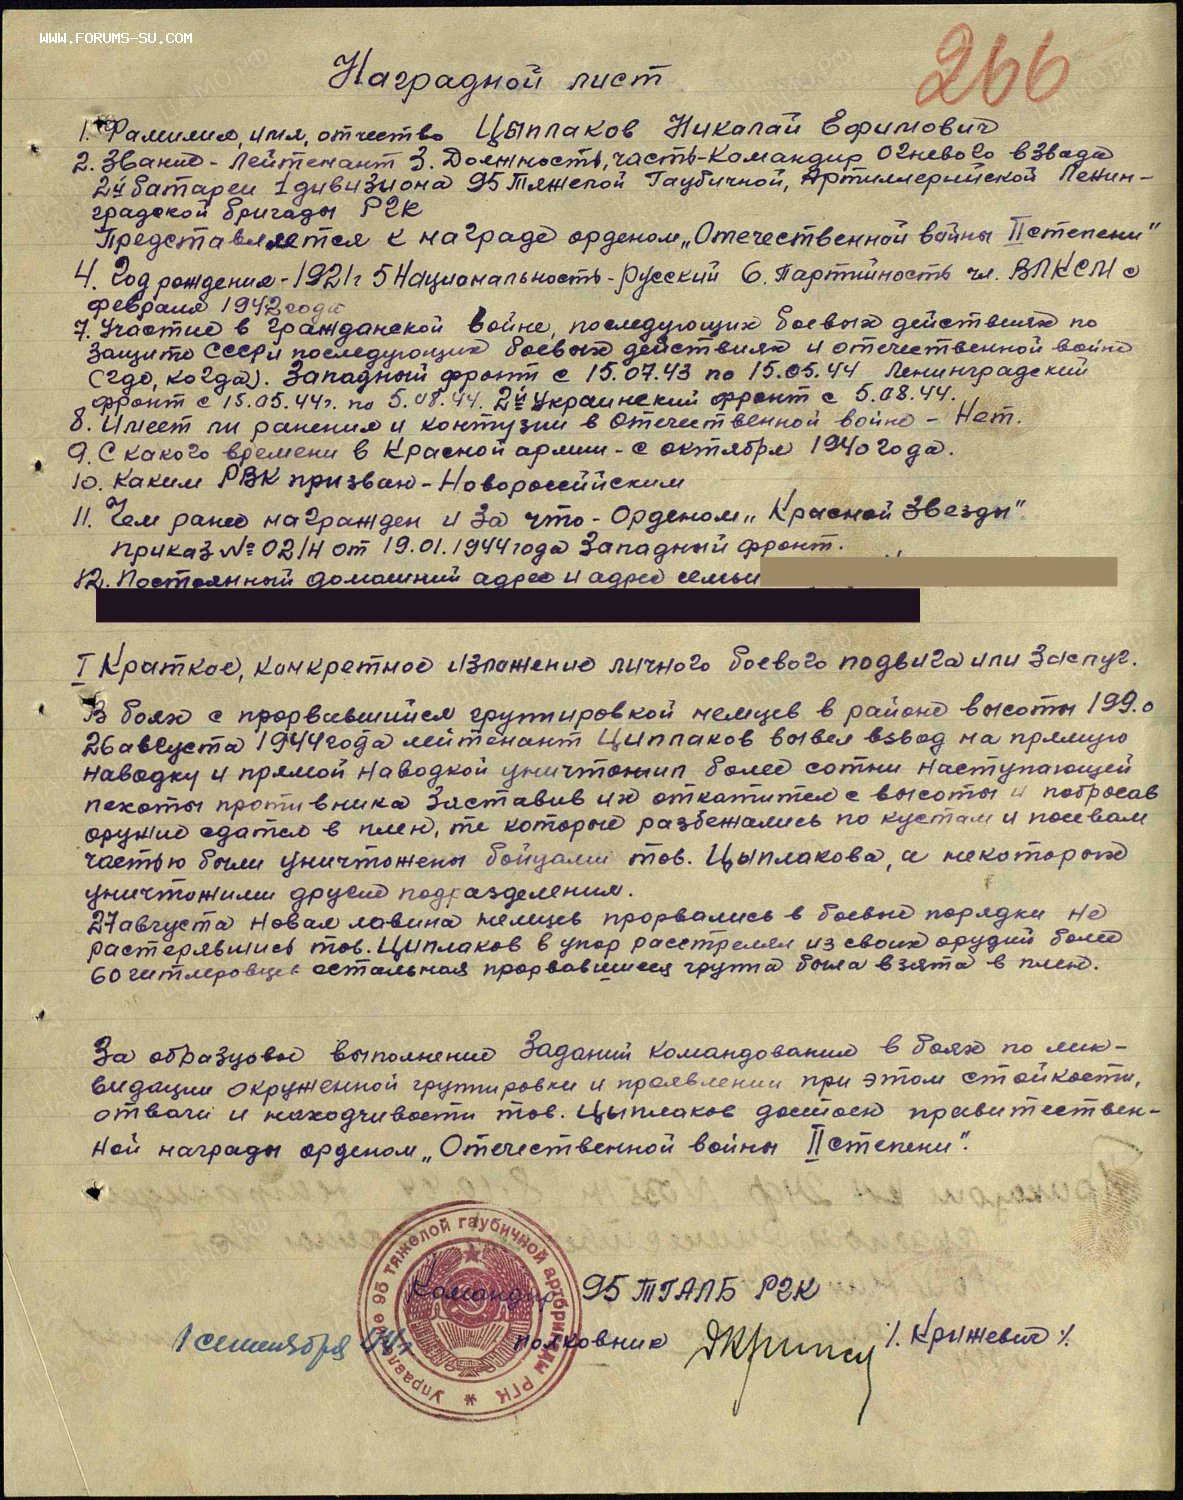 WWW.FORUMS-SU.COM
266
Наградной лист
1. Фамилия, имя, отчество Цыплаков Николай Ефимович
2. Звание - Лейтенант 3. Должность, часть - Командир огневого взвода
2й батареи 1 дивизиона 95 Тяжелой Гаубичной, Артиллерийской Ленин-
градской бригады РГК
Представляется к награде орденом „Отечественной войны II степени"
4. Год рождения - 1921 г 5 Национальность - Русский 6. Партийность чл. ВЛКСМ с
февраля 1942 года
7. Участие в гражданской войне, последующих боевых действиях по
защите СССР и последующих боевых действиях и отечественной войне
(где, когда). Западный фронт с 15.07.43 по 15.05.44 Ленинградский
фронт с 15.05.44г. по 5.08.44. 2й Украинский фронт с 5.08.44.
8. Имеет ли ранения и контузии в Отечественной войне - Нет.
9. С какого времени в Красной армии - с октября 1940 года.
10. Каким РВК призван - Новороссийским
11. Чем ранее награжден и за что - Орденом „Красной Звезды"
приказ № 02/Н от 19.01.1944 года Западный фронт.
12. Постоянный домашний адрес и адрес семьи
I Краткое, конкретное изложение личного боевого подвига или заслуг.
В боях с прорвавшийся группировкой немцев в районе высоты 199.0
26 августа 1944 года лейтенант Циплаков вывел взвод на прямую
наводку и прямой наводкой уничтожил более сотни наступающей
пехоты противника заставив их откатится с высоты и побросав
оружие сдатся в плен, те которые разбежались по кустам и посевам
частью были уничтожены бойцами тов. Цыплакова, а некоторых
уничтожили другие подразделения.
27 августа новая лавина немцев прорвались в боевые порядки не
растерявшись тов. Циплаков в упор расстрелял из своих орудий более
60 гитлеровцев остальная прорвавшиеся группа была взята в плен.
За образцовое выполнение заданий командования в боях по лик-
видации окруженной группировки и проявлении при этом стойкости,
отваги и находчивости тов. Цыплаков достоен правитествен-
ной награды орденом „Отечественной войны II степени".
Управление 95 тяжелой гаубичной артбригады РГК
Командир 95 ТГАЛБ РГК
1 сентября 44г полковник /. Крижевич /.